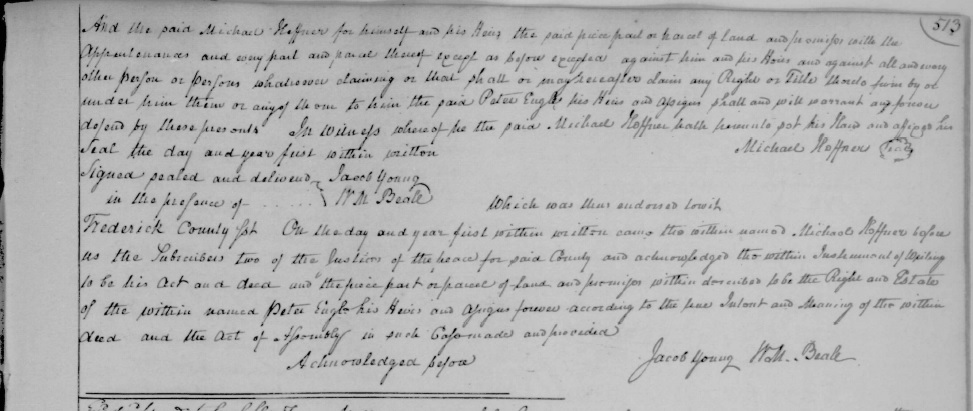 513
And the said Michael Hoffner for himself and his Heirs the said piece part or parcel of Land and premises with the
Appurtenances and every part and parcel thereof except as before excepted against him and his Heirs and against all and every
other Person or Persons whatsoever claiming or that shall or may hereafter claim any Right or Title thereto from by or
under him them or any of them to him the said Peter Engle his Heirs and assigns shall and will warrant and forever
defend by these presents In Witness whereof he the said Michael Hoffner hath hereunto set his Hand and affixed his
Seal the day and year first within written Michael Hoffner Seal
Signed sealed and delivered Jacob Young
in the presence of . . . . . . Wm Beall Which was thus endorsed towit
Frederick County Sct On the day and year first within written came the within named Michael Hoffner before
us the Subscribers two of the Justices of the peace for said County and acknowledged the within Instrument of Writing
to be his Act and deed and the piece part or parcel of Land and premises within described to be the Right and Estate
of the within named Peter Engle his Heirs and assigns forever according to the true Intent and Meaning of the within
deed and the Act of Assembly in such Case made and provided
Acknowledged before Jacob Young Wm. Beall